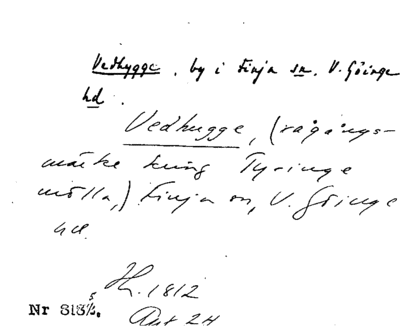 Vedhygge, by i Finja sn, V. Göinge
hd.
Vedhugge, (rågångs-
märke kring Tyringe
mölla,) Finja sn, V. Göinge
hd.
Hl. 1812
Nr 318
Akt 24